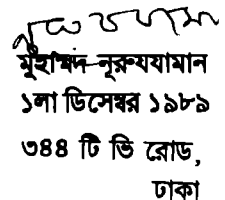 মুহাম্মদ নূরুযযামান
১লা ডিসেম্বর ১৯৮৯
৩৪৪ টি ভি রোড,
ঢাকা